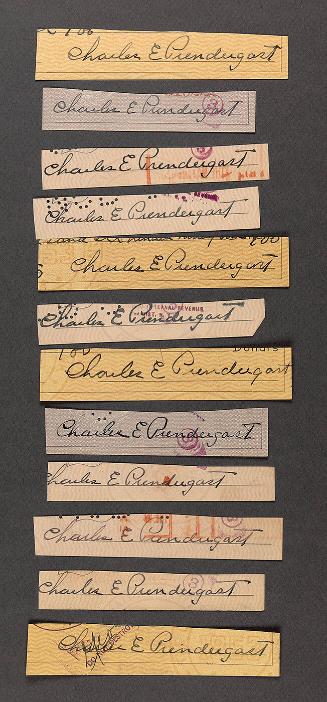 Charles E Prendergast
Charles E Prendergast
3
Charles E Prendergast
3
Charles E Prendergast
100
Charles E Prendergast
INTERNAL REVENUE
Charles E Prendergast
100
Dollars
Charles E Prendergast
Charles E Prendergast
Charles E Prendergast
Charles E Prendergast
3
Charles E Prendergast
3
Charles E Prendergast